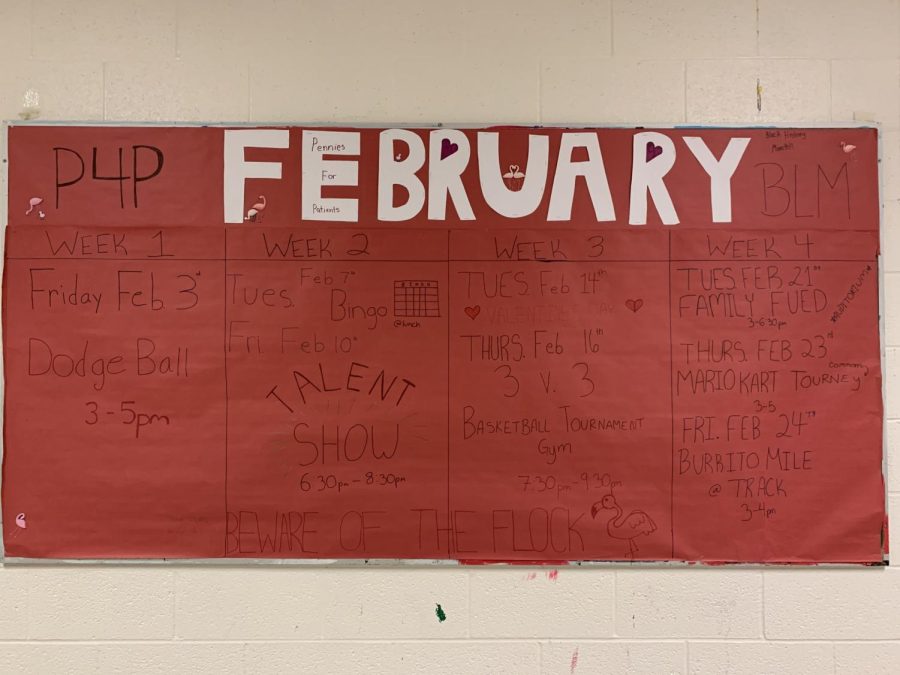 P4P
FEBRUARY
Pennies
For
Patients
Black History
Month
BLM
WEEK 1
Friday Feb 3rd
Dodge Ball
3-5pm
WEEK 2
Tues. Feb 7th
Bingo
@lunch
Fri. Feb 10th
TALENT
SHOW
6:30pm - 8:30pm
WEEK 3
TUES. Feb 14th
VALENTINES DAY
THURS. Feb 16th
3 v. 3
BASKETBALL TOURNAMENT
Gym
7:30pm-9:30pm
WEEK 4
TUES FEB 21st
FAMILY FUED
3-6:30pm
*AUDITORIUM*
THURS. FEB 23rd
common
MARIO KART TOURNEY
3-5
FRI. FEB 24TH
BURRITO MILE
@ TRACK
3-4pm
BEWARE OF THE FLOCK